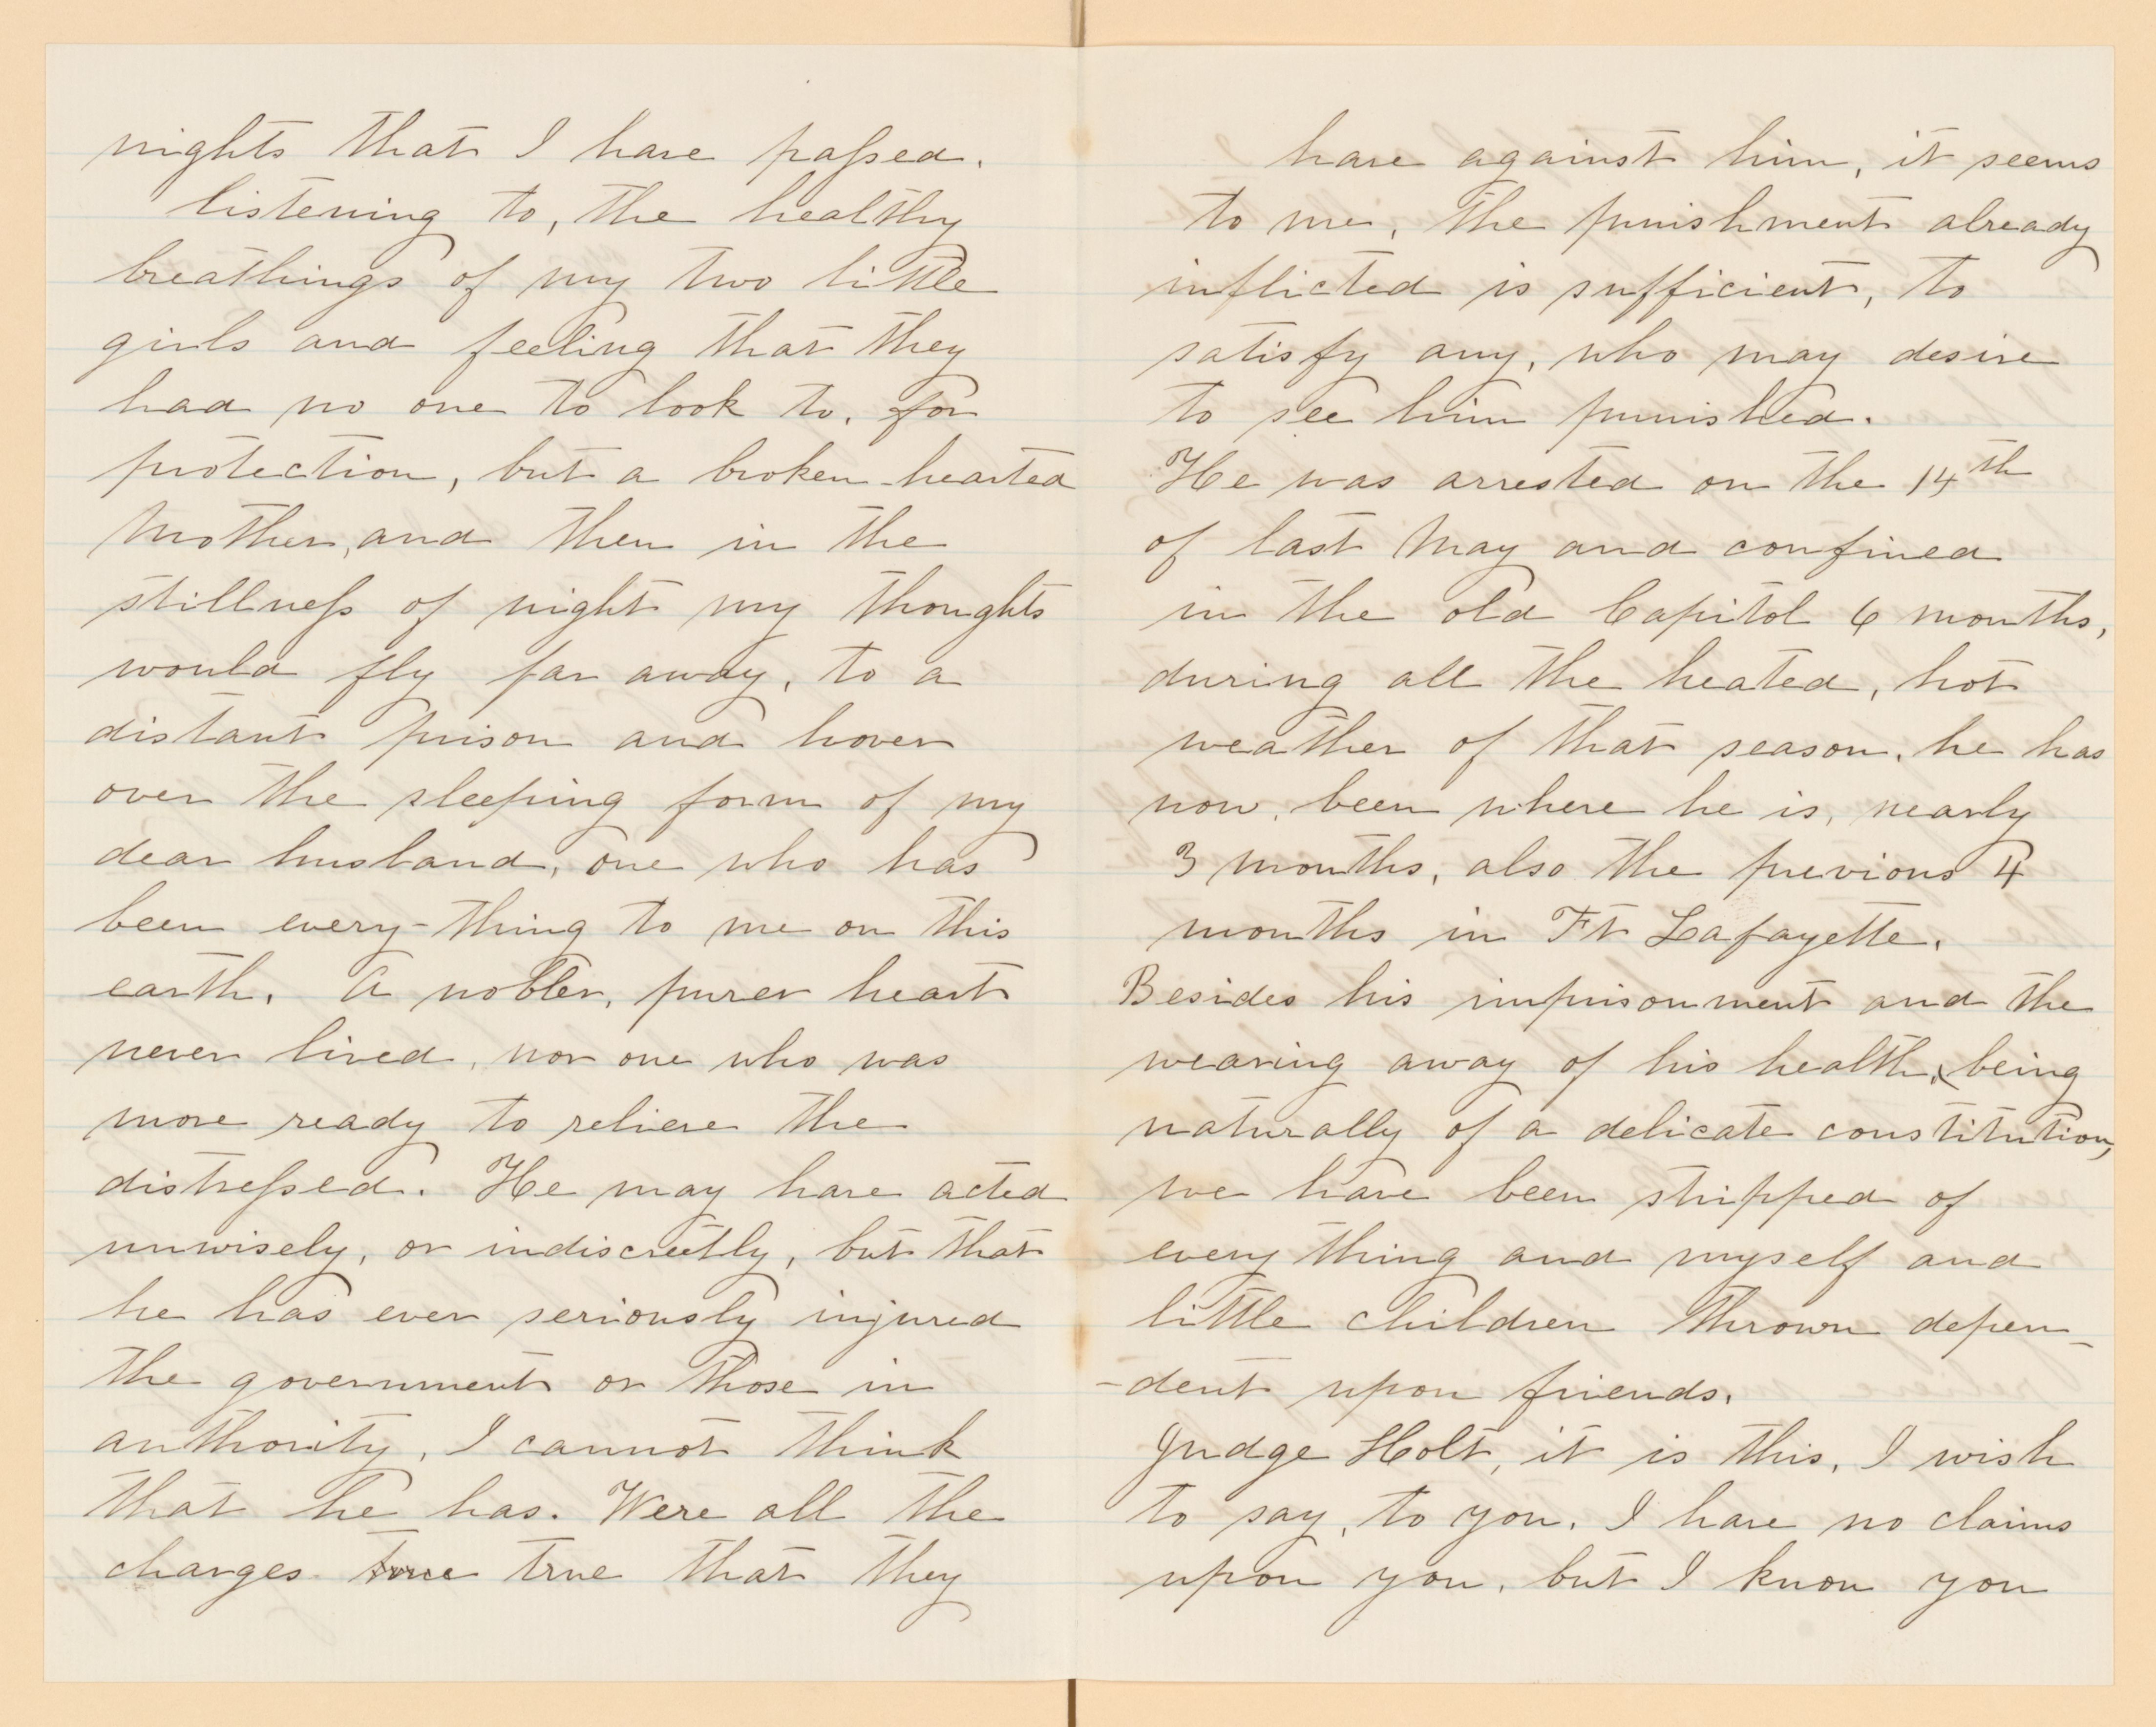 nights that I have paſsed.
listening to, the healthy
breathings of my two little
girls and feeling that they
had no one to look to, for
protection, but a broken-hearted
Mother, and then in the
stillneſs of night my thoughts
would fly far away, to a
distant prison and hover
over the sleeping form of my
dear husband, one who has
been every-thing to me on this
earth. A nobler, purer heart
never lived, nor one who was
more ready to relieve the
distreſsed. He may have acted
unwisely, or indiscreetly, but that
he has ever seriously injured
the government or those in
authority, I cannot think
that he has. Were all the
charges true true that they
have against him, it seems
to me, the punishment already
inflicted is sufficient, to
satisfy any, who may desire
to see him punished.
He was arrested on the 14th
of last May and confined
in the old Capitol 6 months,
during all the heated, hot
weather of that season, he has
now, been where he is, nearly
3 months, also the previous 4
months in Ft Lafayette.
Besides his imprisonment and the
wearing away of his health, (being
naturally of a delicate constitution,
we have been stripped of
every thing and myself and
little children thrown depen-
-dent upon friends.
Judge Holt, it is this, I wish
to say, to you. I have no claims
upon you, but I know you